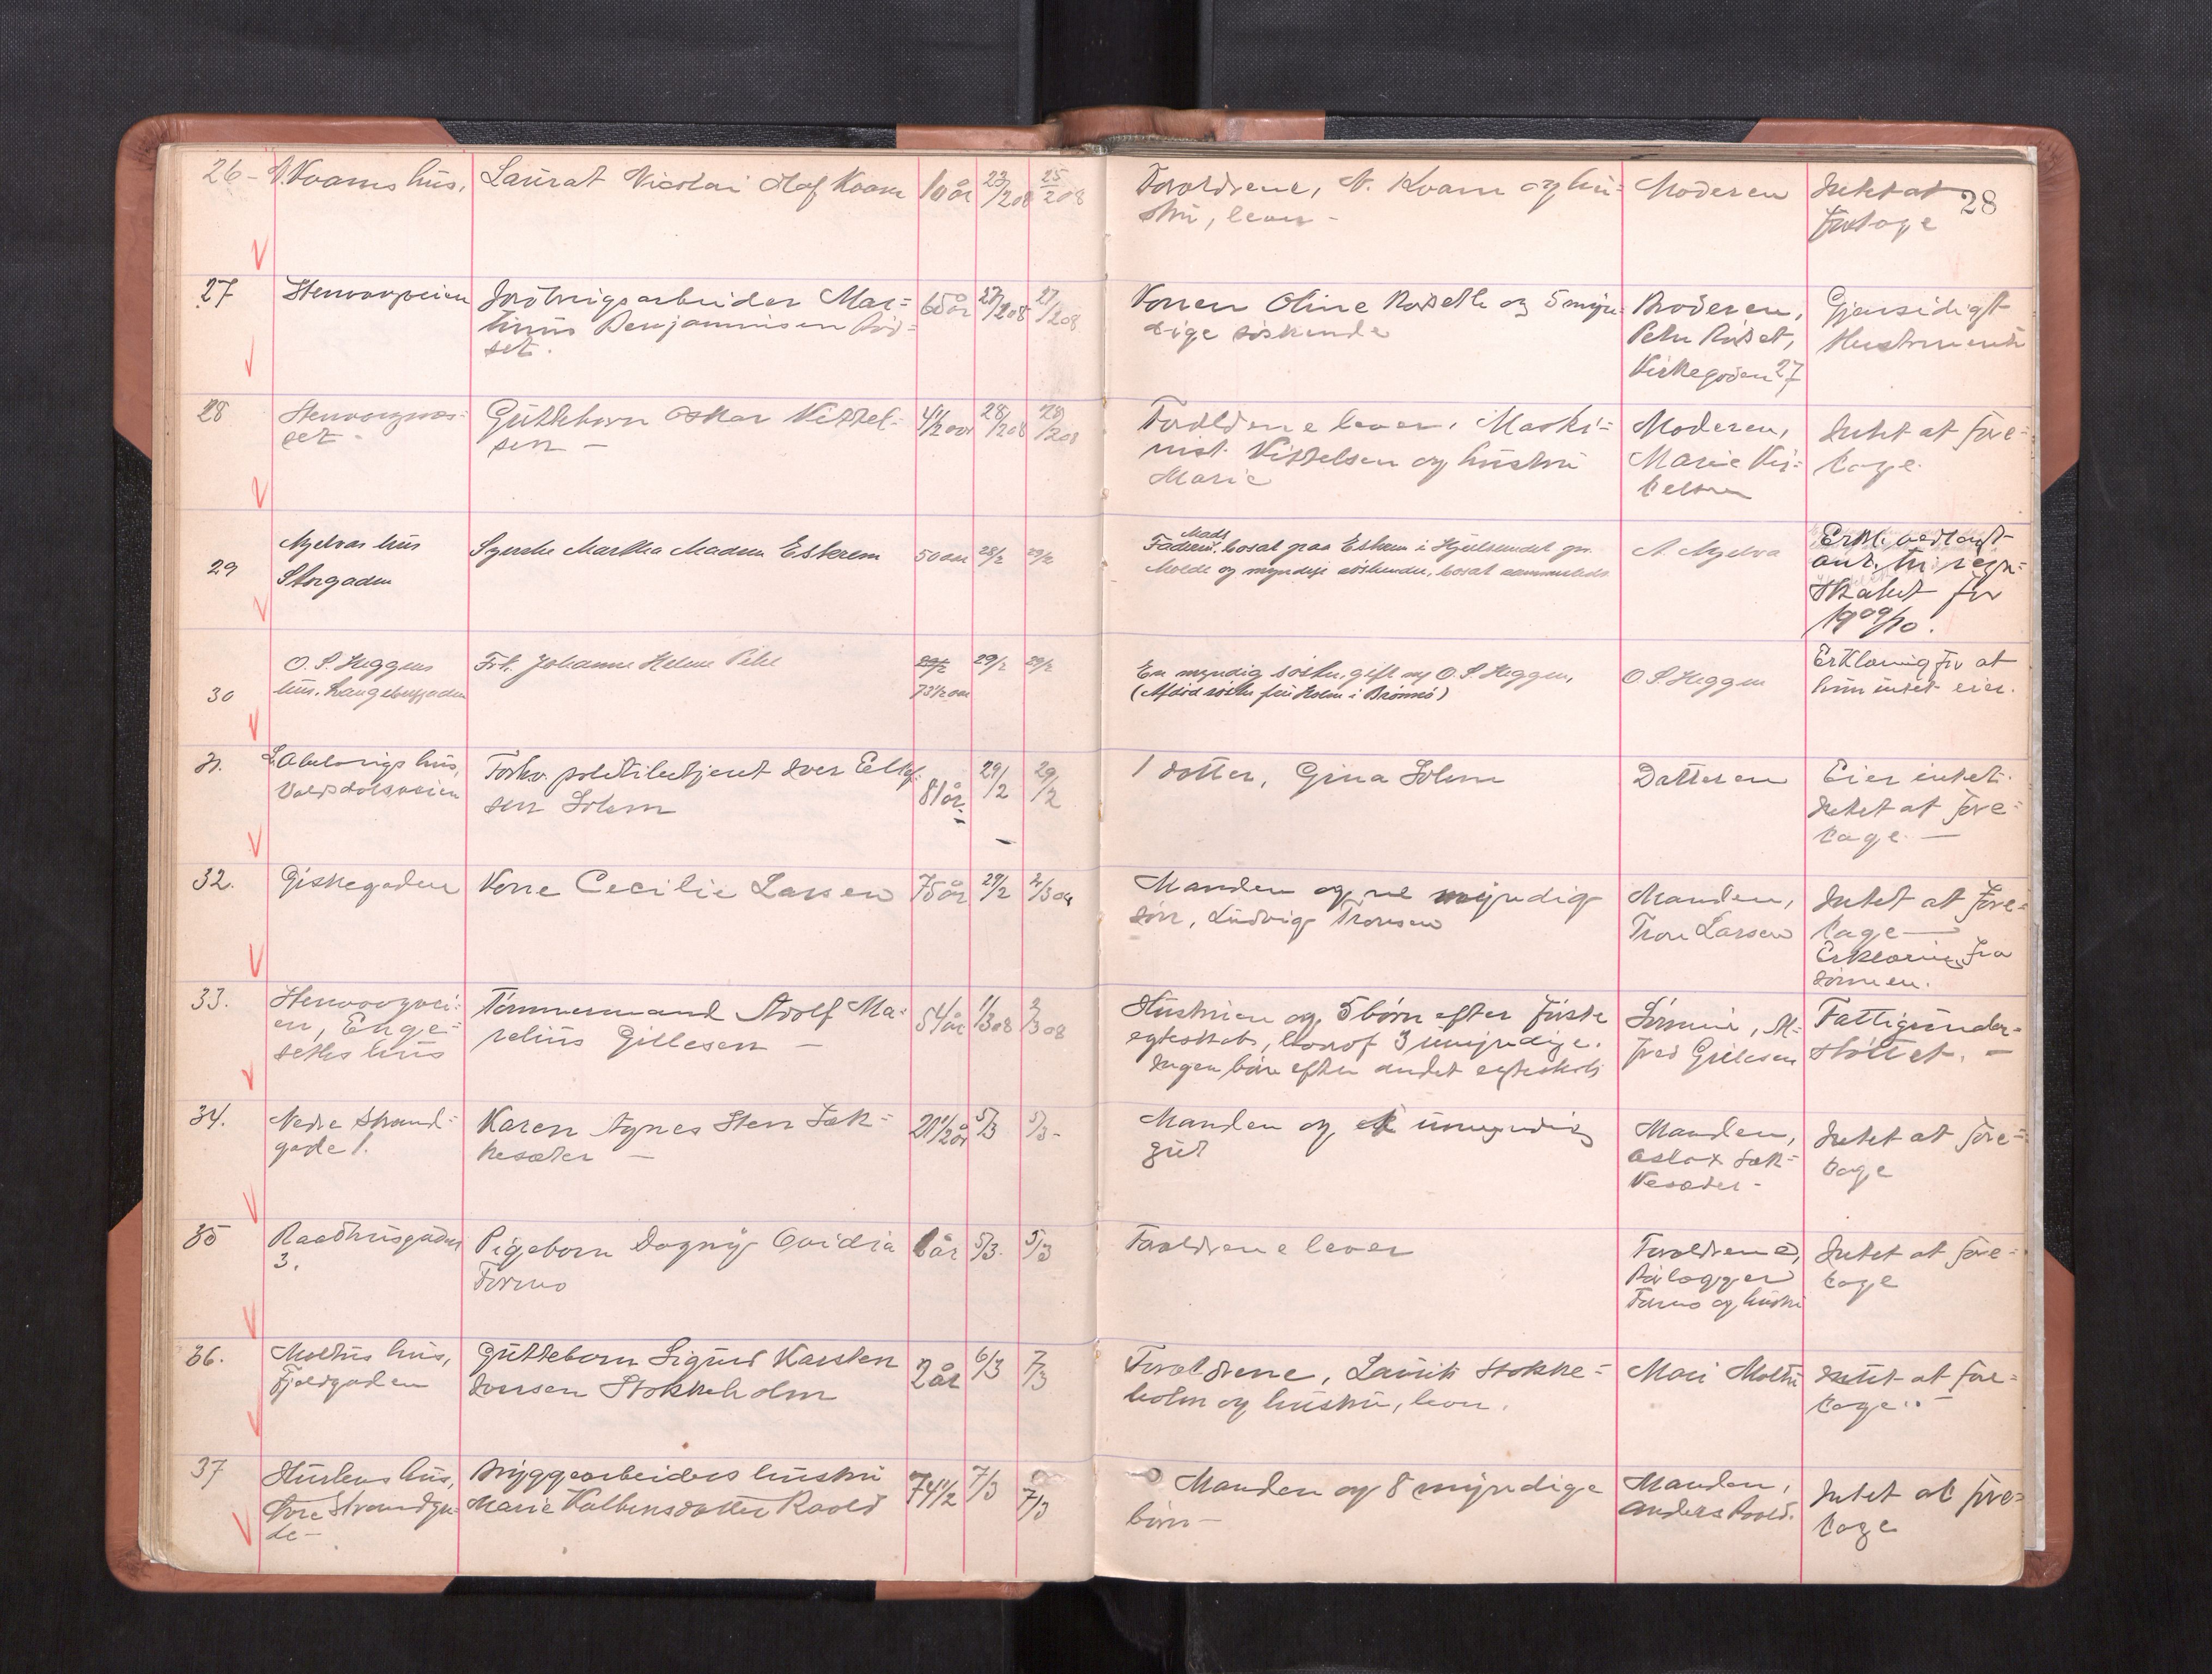 28
26- Kvams hus, Laurat Nicolai Olaf Kvam 10 år 23/2 08 25/2 08 Forældrene, N. Kvam og hu=
stru, lever - Moderen Intet at
foretage
27 Stenvaagveien Mar= 65 år 27/2 08 27/2 08 Konen Oline og 5 myn=
dige søskende Broderen,
tinus Benjaminsen Rød=
set. Peter Rødset,
Kirkegaden 27 Gjensidigt
28 Stenvaagnæs=
set - Guttebarn Oskar Kittel=
sen - 4 1/2 aar 28/2 08 29/2 08 Forældrene lever. Maski=
nist Kittelsen og hustru
Marie Moderen,
Marie Kit=
telsen Intet at fore=
tage.
29 Myelvas hus
Storgaden Syerske Martha Madsen Eskrem 50 aar 28/2 29/2 Faderen Mads bosat paa Eskrem i pr.
Molde og myndige søskende, bosat sammesteds A. Myelva Erkl. vedlagt
ant. til regn=
skabet for
1909/10.
30 O. P. Heggens
hus. Frk. Johanne Helene 73 1/2 aar 29/2 29/2 En myndig søster, gift m O. P. Heggen,
(Afdød søster fru Holm i Brønnø) O P Heggen Erklæring for at
hun intet eier.
31. hus,
Forhv. politibetjent Iver
sen Solem 81 år. 29/2 29/2 1 datter, Gina Solem Datteren Eier intet.
Intet at fore=
tage. -
32. Giskegaden Kone Cecilie Larsen 75 år 29/2 2/3 08 Manden og en myndig
søn, Ludvig Tronsen Manden,
Tron Larsen Intet at fore=
tage -
Erklæring fra
sønnen.
33. Stenvaagvei=
en, Enge=
seths hus Tømmermand Adolf Ma=
relius Gillesen - 54 år 1/3 08 2/3 08 Hustruen og 5 børn efter første
egteskab, hvoraf 3 umyndige.
Ingen børn efter andet egteskab Sønnen, Al=
fred Gillesen Fattigunder=
støttet. -
34. Nedre Strand=
gade 1. Karen Agnes Sten Sæk=
kesæter - 21 1/2 år 5/3 5/3- Manden og et umyndig
gut Manden,
Aslak Sæk=
kesæter - Intet at fore=
tage
35 Raadhusgaden
3. Pigebarn Dagny Ovidia
Formo 1 år 5/3. 5/3 Forældrene lever Forældrene,
Formo og hustru Intet at fore=
tage
36. Moltus hus,
Fjeldgaden Guttebarn Sigurd Karsten
Iversen Stokkeholm 2 år 6/3 7/3 Forældrene, Laurits Stokke=
holm og hustru, lever. Mari Moltu Intet at fore=
tage.. -
37 hus,
Øvre Strandga=
de - Bryggearbeiders hustru
Marie Roald 74 1/2 7/3 7/3 Manden og 8 myndige
børn - Manden,
Anders Roald. Intet at fore=
tage